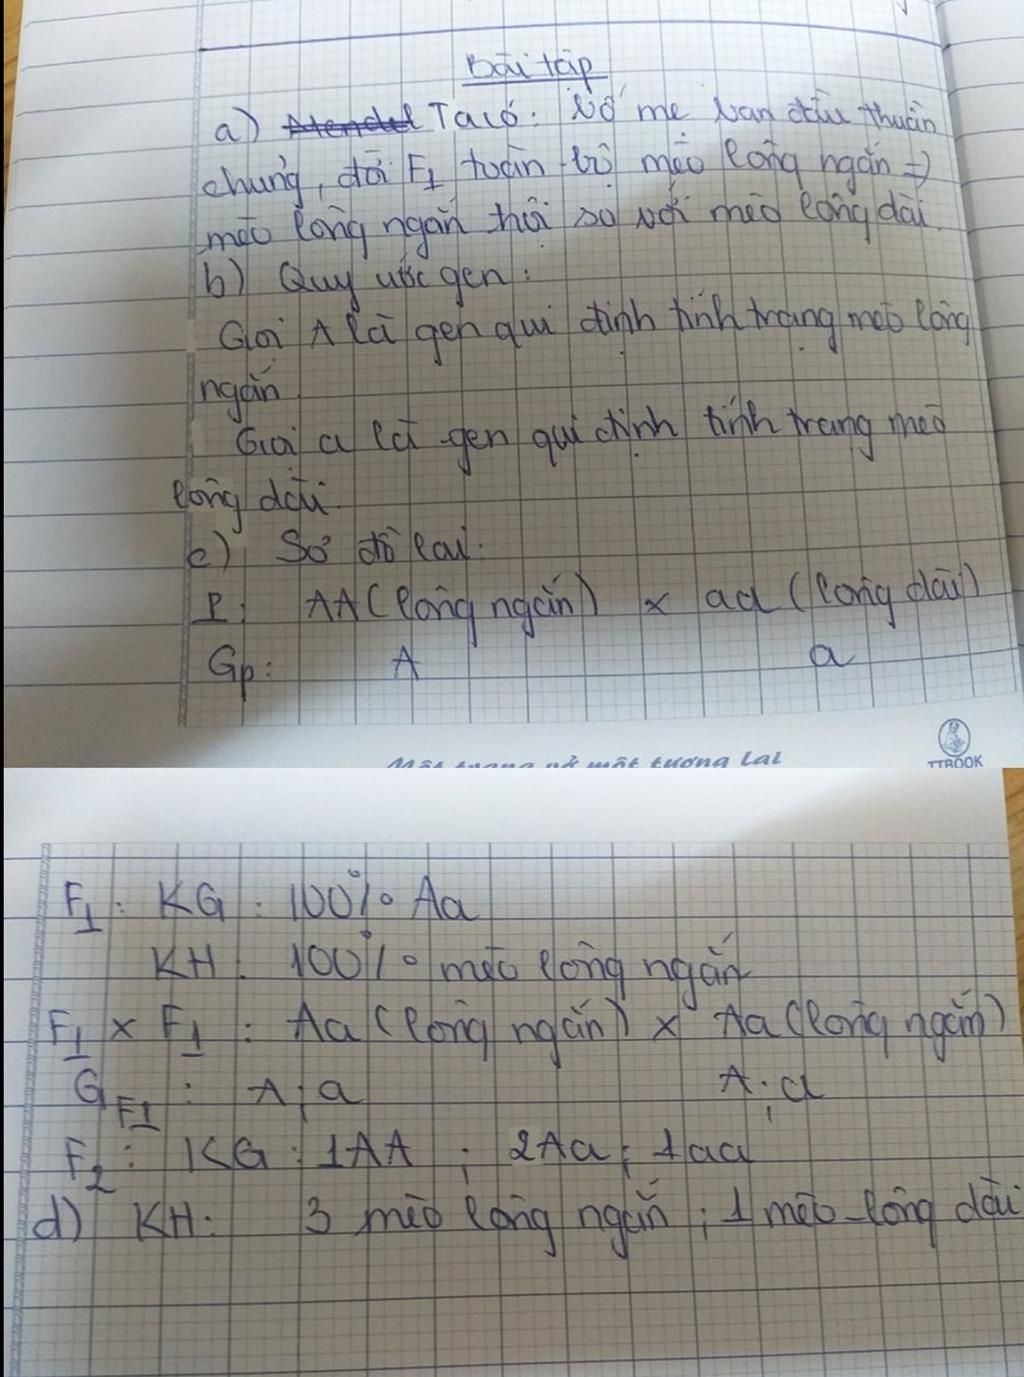 Bài tập
a) Mendel Ta có: bố mẹ ban đầu thuần
chủng, đời F1 toàn bộ mèo lông ngắn =>
mèo lông ngắn trội so với mèo lông dài.
b) Quy ước gen:
Gọi A là gen qui định tính trạng mèo lông
ngắn
Gọi a là gen qui định tính trạng mèo
lông dài.
c) Sơ đồ lai:
P: AA (lông ngắn) x aa (lông dài)
Gp: A a
Một trang vở một tương lai
TTBOOK
F1: KG: 100% Aa
KH: 100% mèo lông ngắn
F1 x F1: Aa (lông ngắn) x Aa (lông ngắn)
GF1: A; a A; a
F2: KG: 1AA; 2Aa; 1aa
d) KH: 3 mèo lông ngắn; 1 mèo lông dài